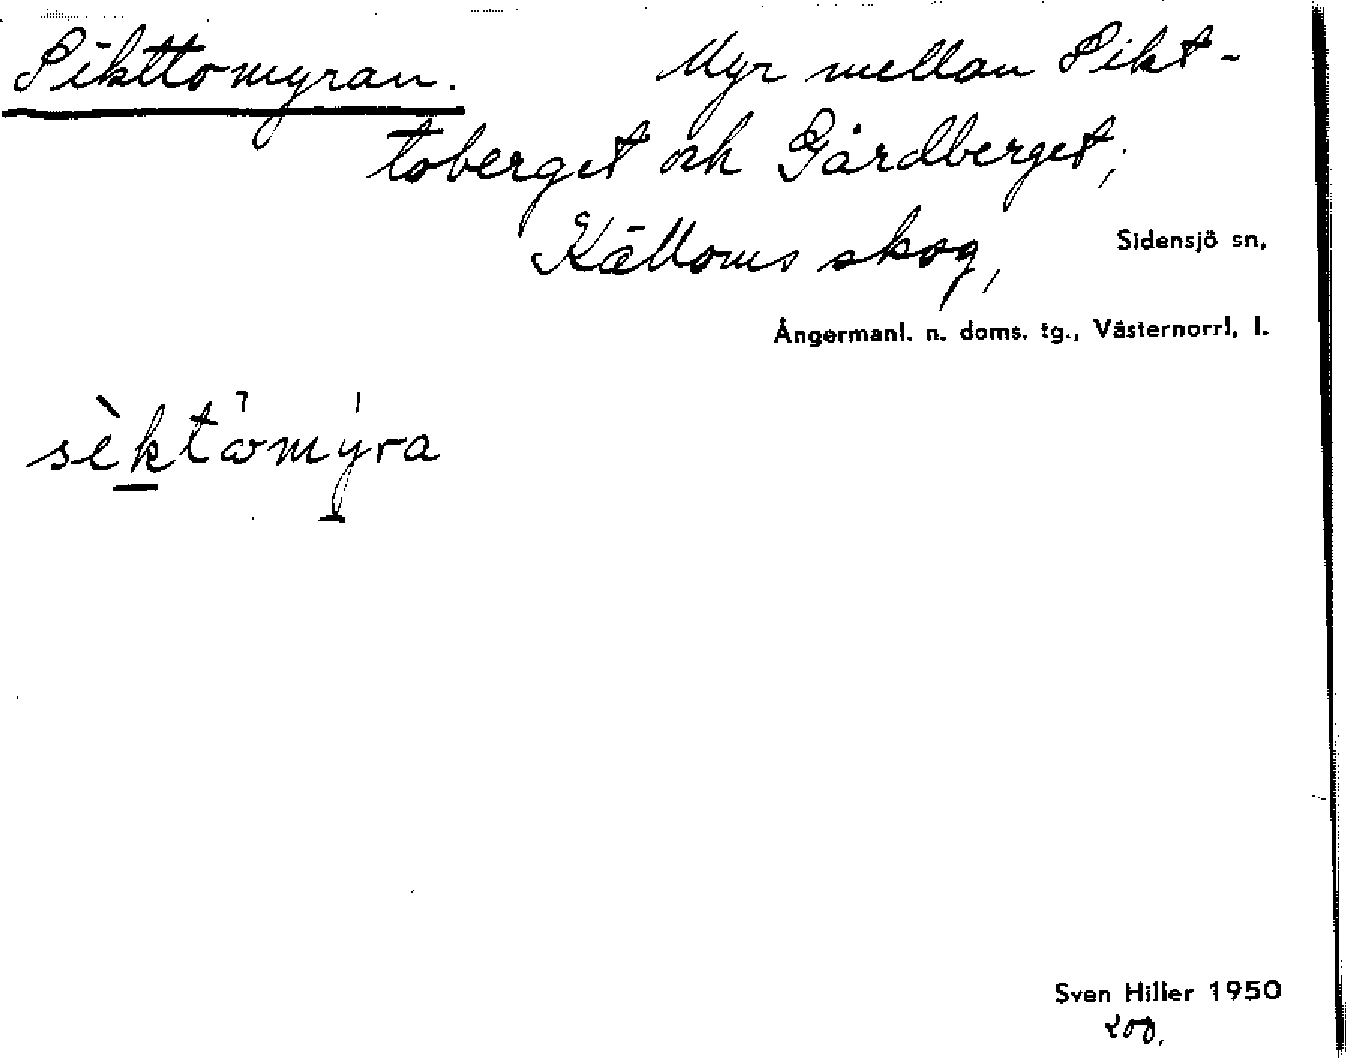 Sikttomyran. Myr mellan Sikt-
toberget och Gårdberget;
Källoms skog,
Sidensjö sn,
Ångermanl. n. doms. tg., Västernorrl. l.
sèktòmýra
Sven Hiller 1950